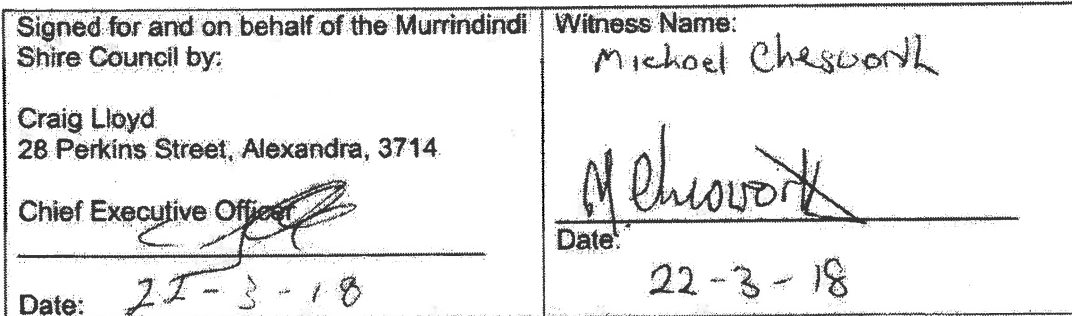 Signed for and on behalf of the Murrindindi
Shire Council by:
Craig Lloyd
28 Perkins Street, Alexandra, 3714
Chief Executive Officer
Date: 22-3-18
Witness Name:
Michael Chesworth
M Chesworth
Date:
22-3-18